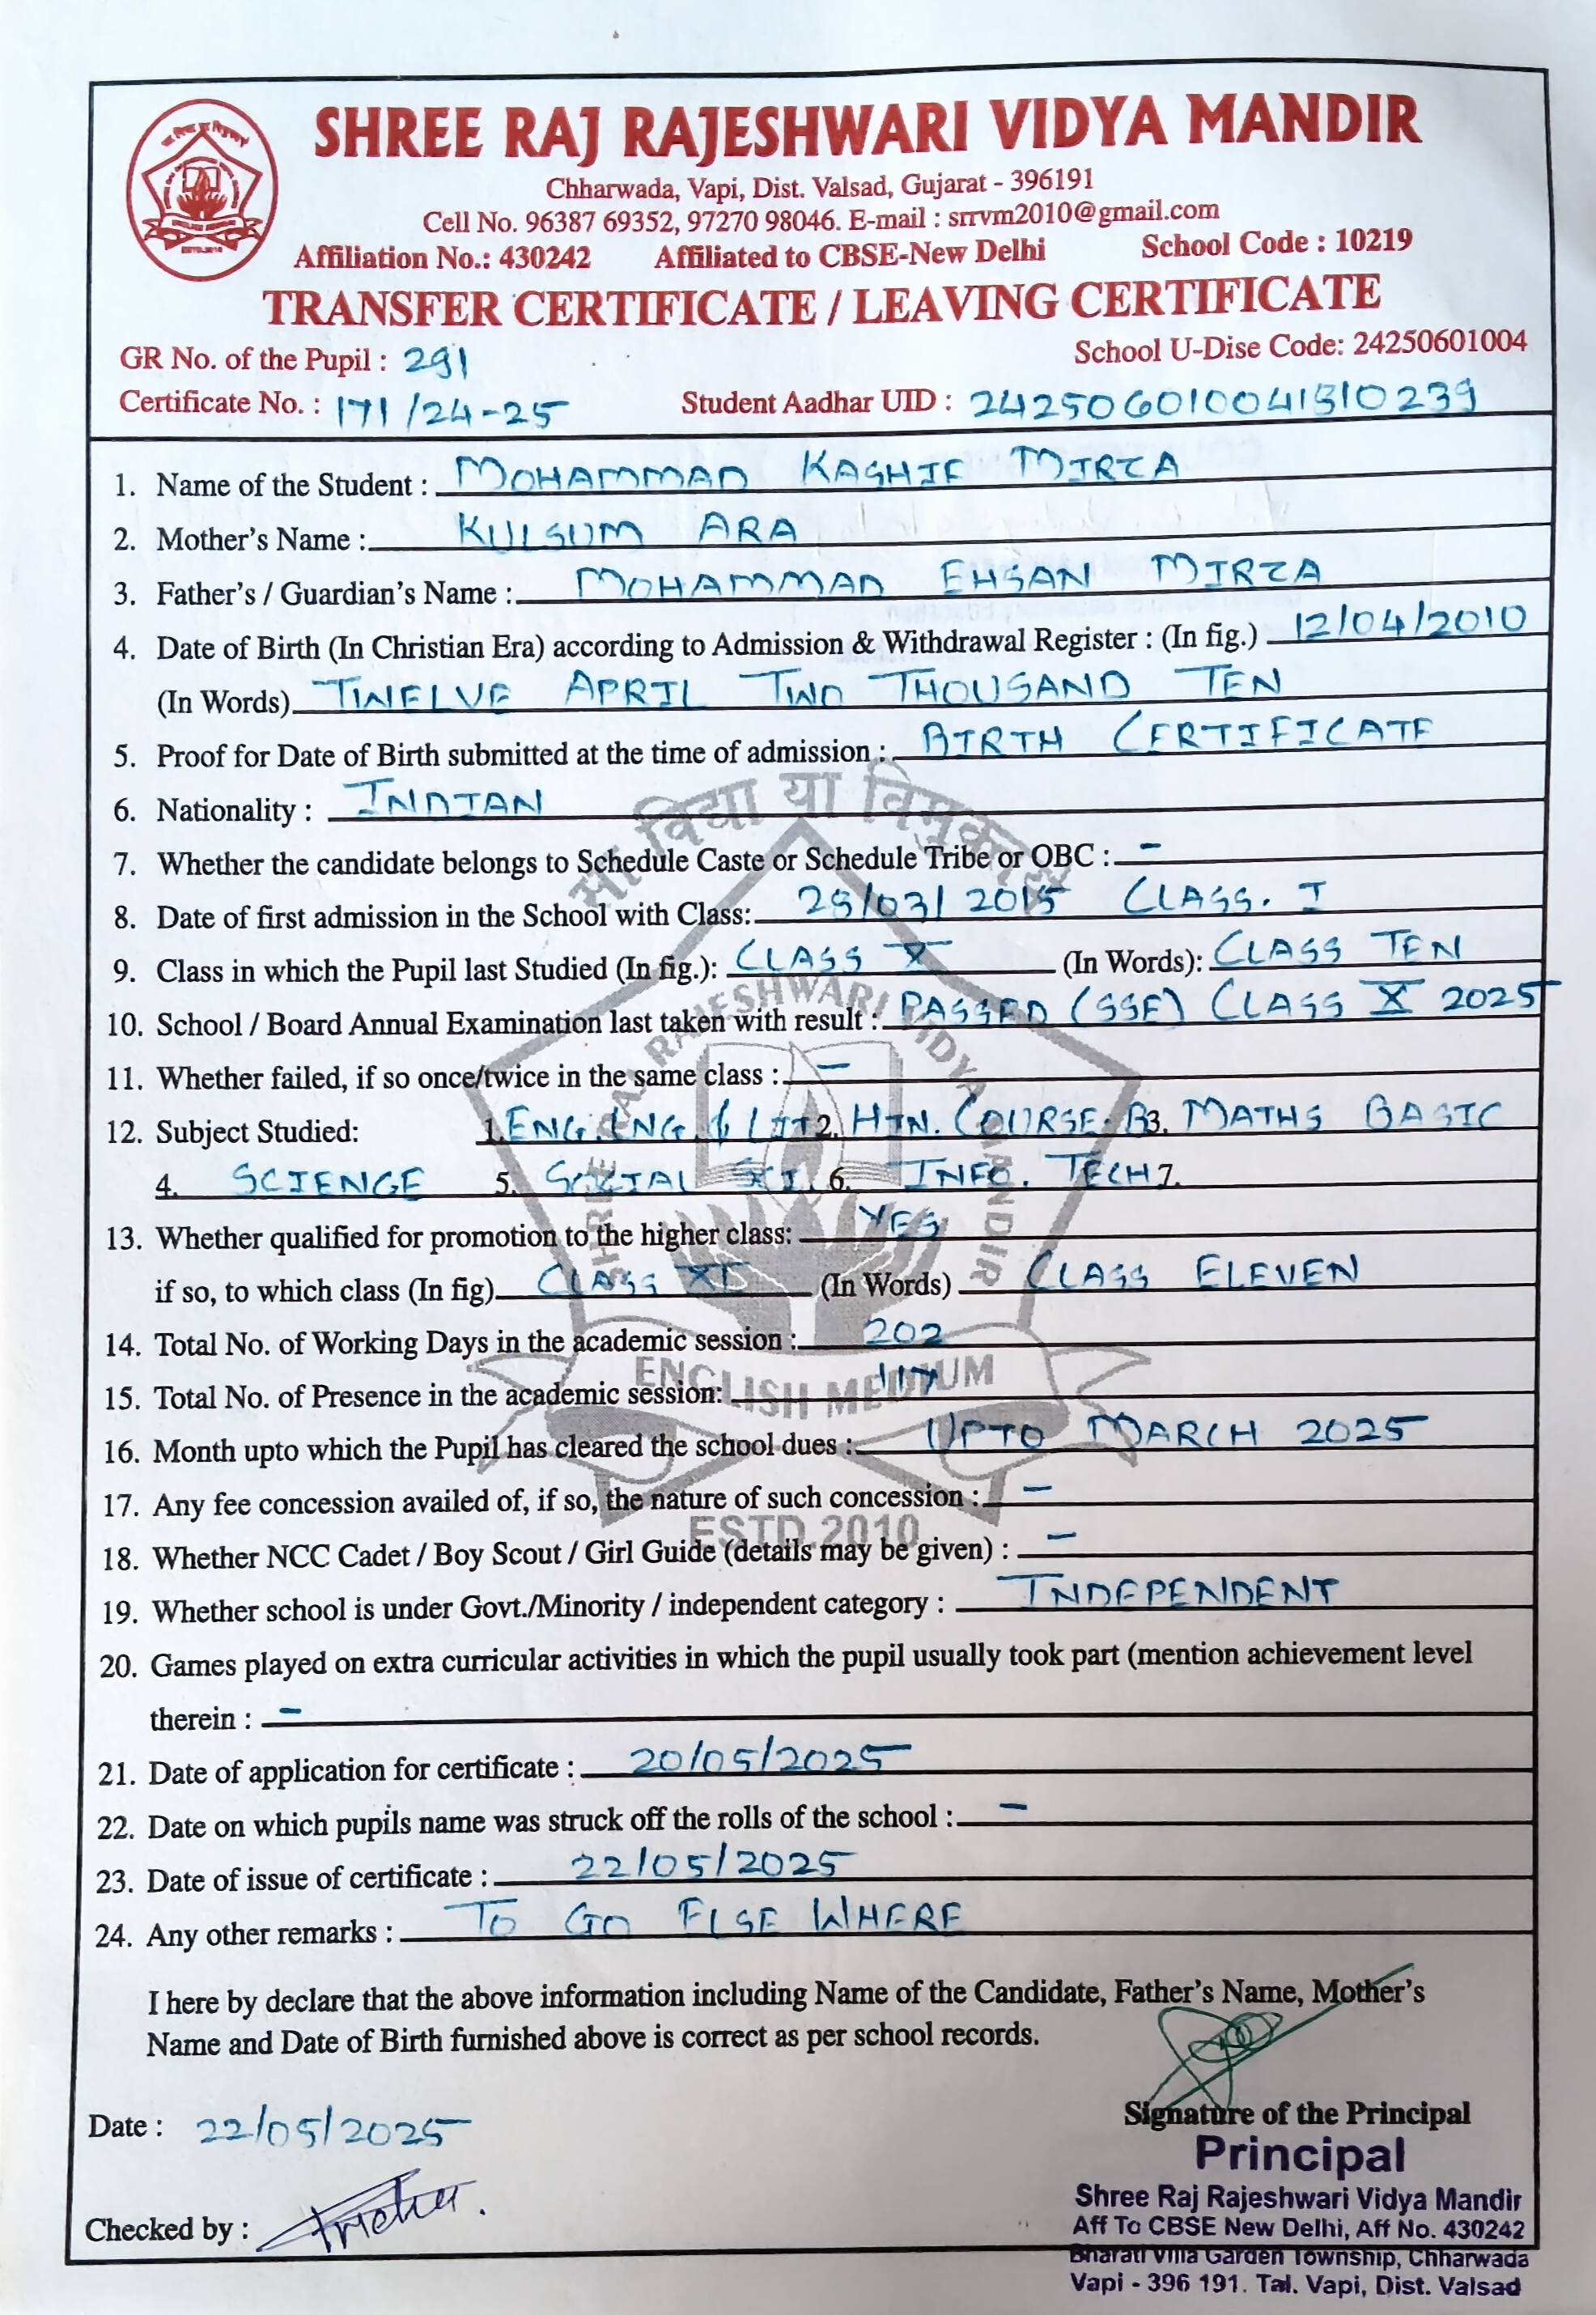 SHREE RAJ RAJESHWARI VIDYA MANDIR
Chharwada, Vapi, Dist. Valsad, Gujarat - 396191
Cell No. 96387 69352, 97270 98046. E-mail : srrvm2010@gmail.com
Affiliation No.: 430242 Affiliated to CBSE-New Delhi School Code : 10219
TRANSFER CERTIFICATE / LEAVING CERTIFICATE
GR No. of the Pupil : 291 School U-Dise Code: 24250601004
Certificate No. : 171/24-25 Student Aadhar UID : 242506010041510239
1. Name of the Student : MOHAMMAD KASHIF MIRZA
2. Mother's Name : KULSUM ARA
3. Father's / Guardian's Name : MOHAMMAD EHSAN MIRZA
4. Date of Birth (In Christian Era) according to Admission & Withdrawal Register : (In fig.) 12/04/2010
(In Words) TWELVE APRIL TWO THOUSAND TEN
5. Proof for Date of Birth submitted at the time of admission : BIRTH CERTIFICATE
6. Nationality : INDIAN
7. Whether the candidate belongs to Schedule Caste or Schedule Tribe or OBC : -
8. Date of first admission in the School with Class: 25/03/2015 CLASS. I
9. Class in which the Pupil last Studied (In fig.): CLASS X (In Words): CLASS TEN
10. School / Board Annual Examination last taken with result : PASSED (SSE) CLASS X 2025
11. Whether failed, if so once/twice in the same class : -
12. Subject Studied: 1. ENG. LNG. & LIT 2. HIN. COURSE-B 3. MATHS BASIC
4. SCIENCE 5. SOCIAL SCI. 6. INFO. TECH 7.
13. Whether qualified for promotion to the higher class: YES
if so, to which class (In fig) CLASS XI (In Words) CLASS ELEVEN
14. Total No. of Working Days in the academic session : 202
15. Total No. of Presence in the academic session: 117
16. Month upto which the Pupil has cleared the school dues : UPTO MARCH 2025
17. Any fee concession availed of, if so, the nature of such concession : -
18. Whether NCC Cadet / Boy Scout / Girl Guide (details may be given) : -
19. Whether school is under Govt./Minority / independent category : INDEPENDENT
20. Games played on extra curricular activities in which the pupil usually took part (mention achievement level
therein : -
21. Date of application for certificate : 20/05/2025
22. Date on which pupils name was struck off the rolls of the school : -
23. Date of issue of certificate : 22/05/2025
24. Any other remarks : TO GO ELSE WHERE
I here by declare that the above information including Name of the Candidate, Father's Name, Mother's
Name and Date of Birth furnished above is correct as per school records.
Signature of the Principal
Date : 22/05/2025
Principal
Shree Raj Rajeshwari Vidya Mandir
Checked by :
Aff To CBSE New Delhi, Aff No. 430242
Bharati Villa Garden Township, Chharwada
Vapi - 396 191. Tal. Vapi, Dist. Valsad
सा विद्या या विमुक्तये
SHREE RAJ RAJESHWARI VIDYA MANDIR
ENGLISH MEDIUM
ESTD.2010